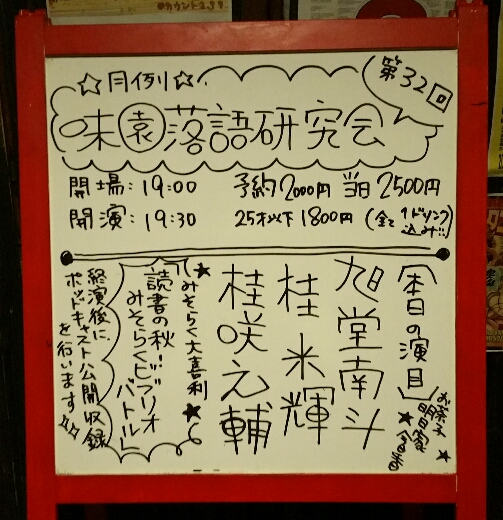 ☆月例☆
第32回
味園落語研究会
開場:19:00 予約2000円 当日2500円
開演:19:30 25才以下1800円(全て1ドリンク込み!!)
本日の演目
旭堂南斗
桂米輝
桂咲之輔
★みそらく大喜利★
読書の秋!!
みそらくビブリオ
バトル
終演後に、
ポッドキャスト公開収録
を行います